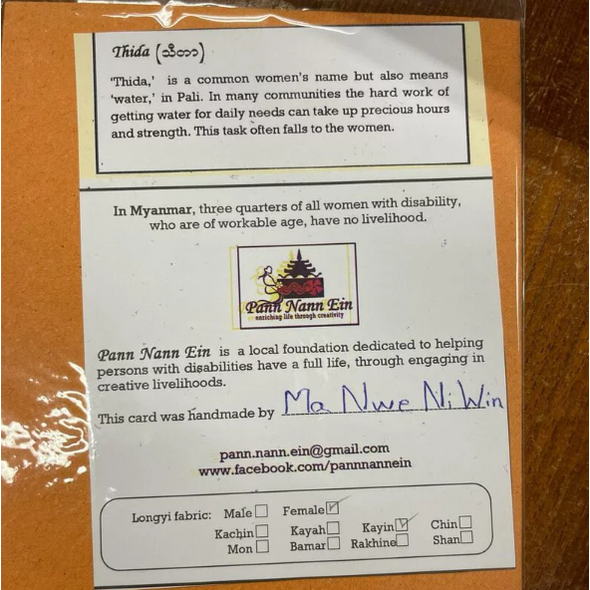 Thida (သီတာ)
'Thida,' is a common women's name but also means
'water,' in Pali. In many communities the hard work of
getting water for daily needs can take up precious hours
and strength. This task often falls to the women.
In Myanmar, three quarters of all women with disability,
who are of workable age, have no livelihood.
Pann Nann Ein
enriching life through creativity
Pann Nann Ein is a local foundation dedicated to helping
persons with disabilities have a full life, through engaging in
creative livelihoods.
This card was handmade by Ma Nwe Ni Win
pann.nann.ein@gmail.com
www.facebook.com/pannnannein
Longyi fabric: Male ☐ Female ☑
Kachin ☐ Kayah ☐ Kayin ☑ Chin ☐
Mon ☐ Bamar ☐ Rakhine ☐ Shan ☐